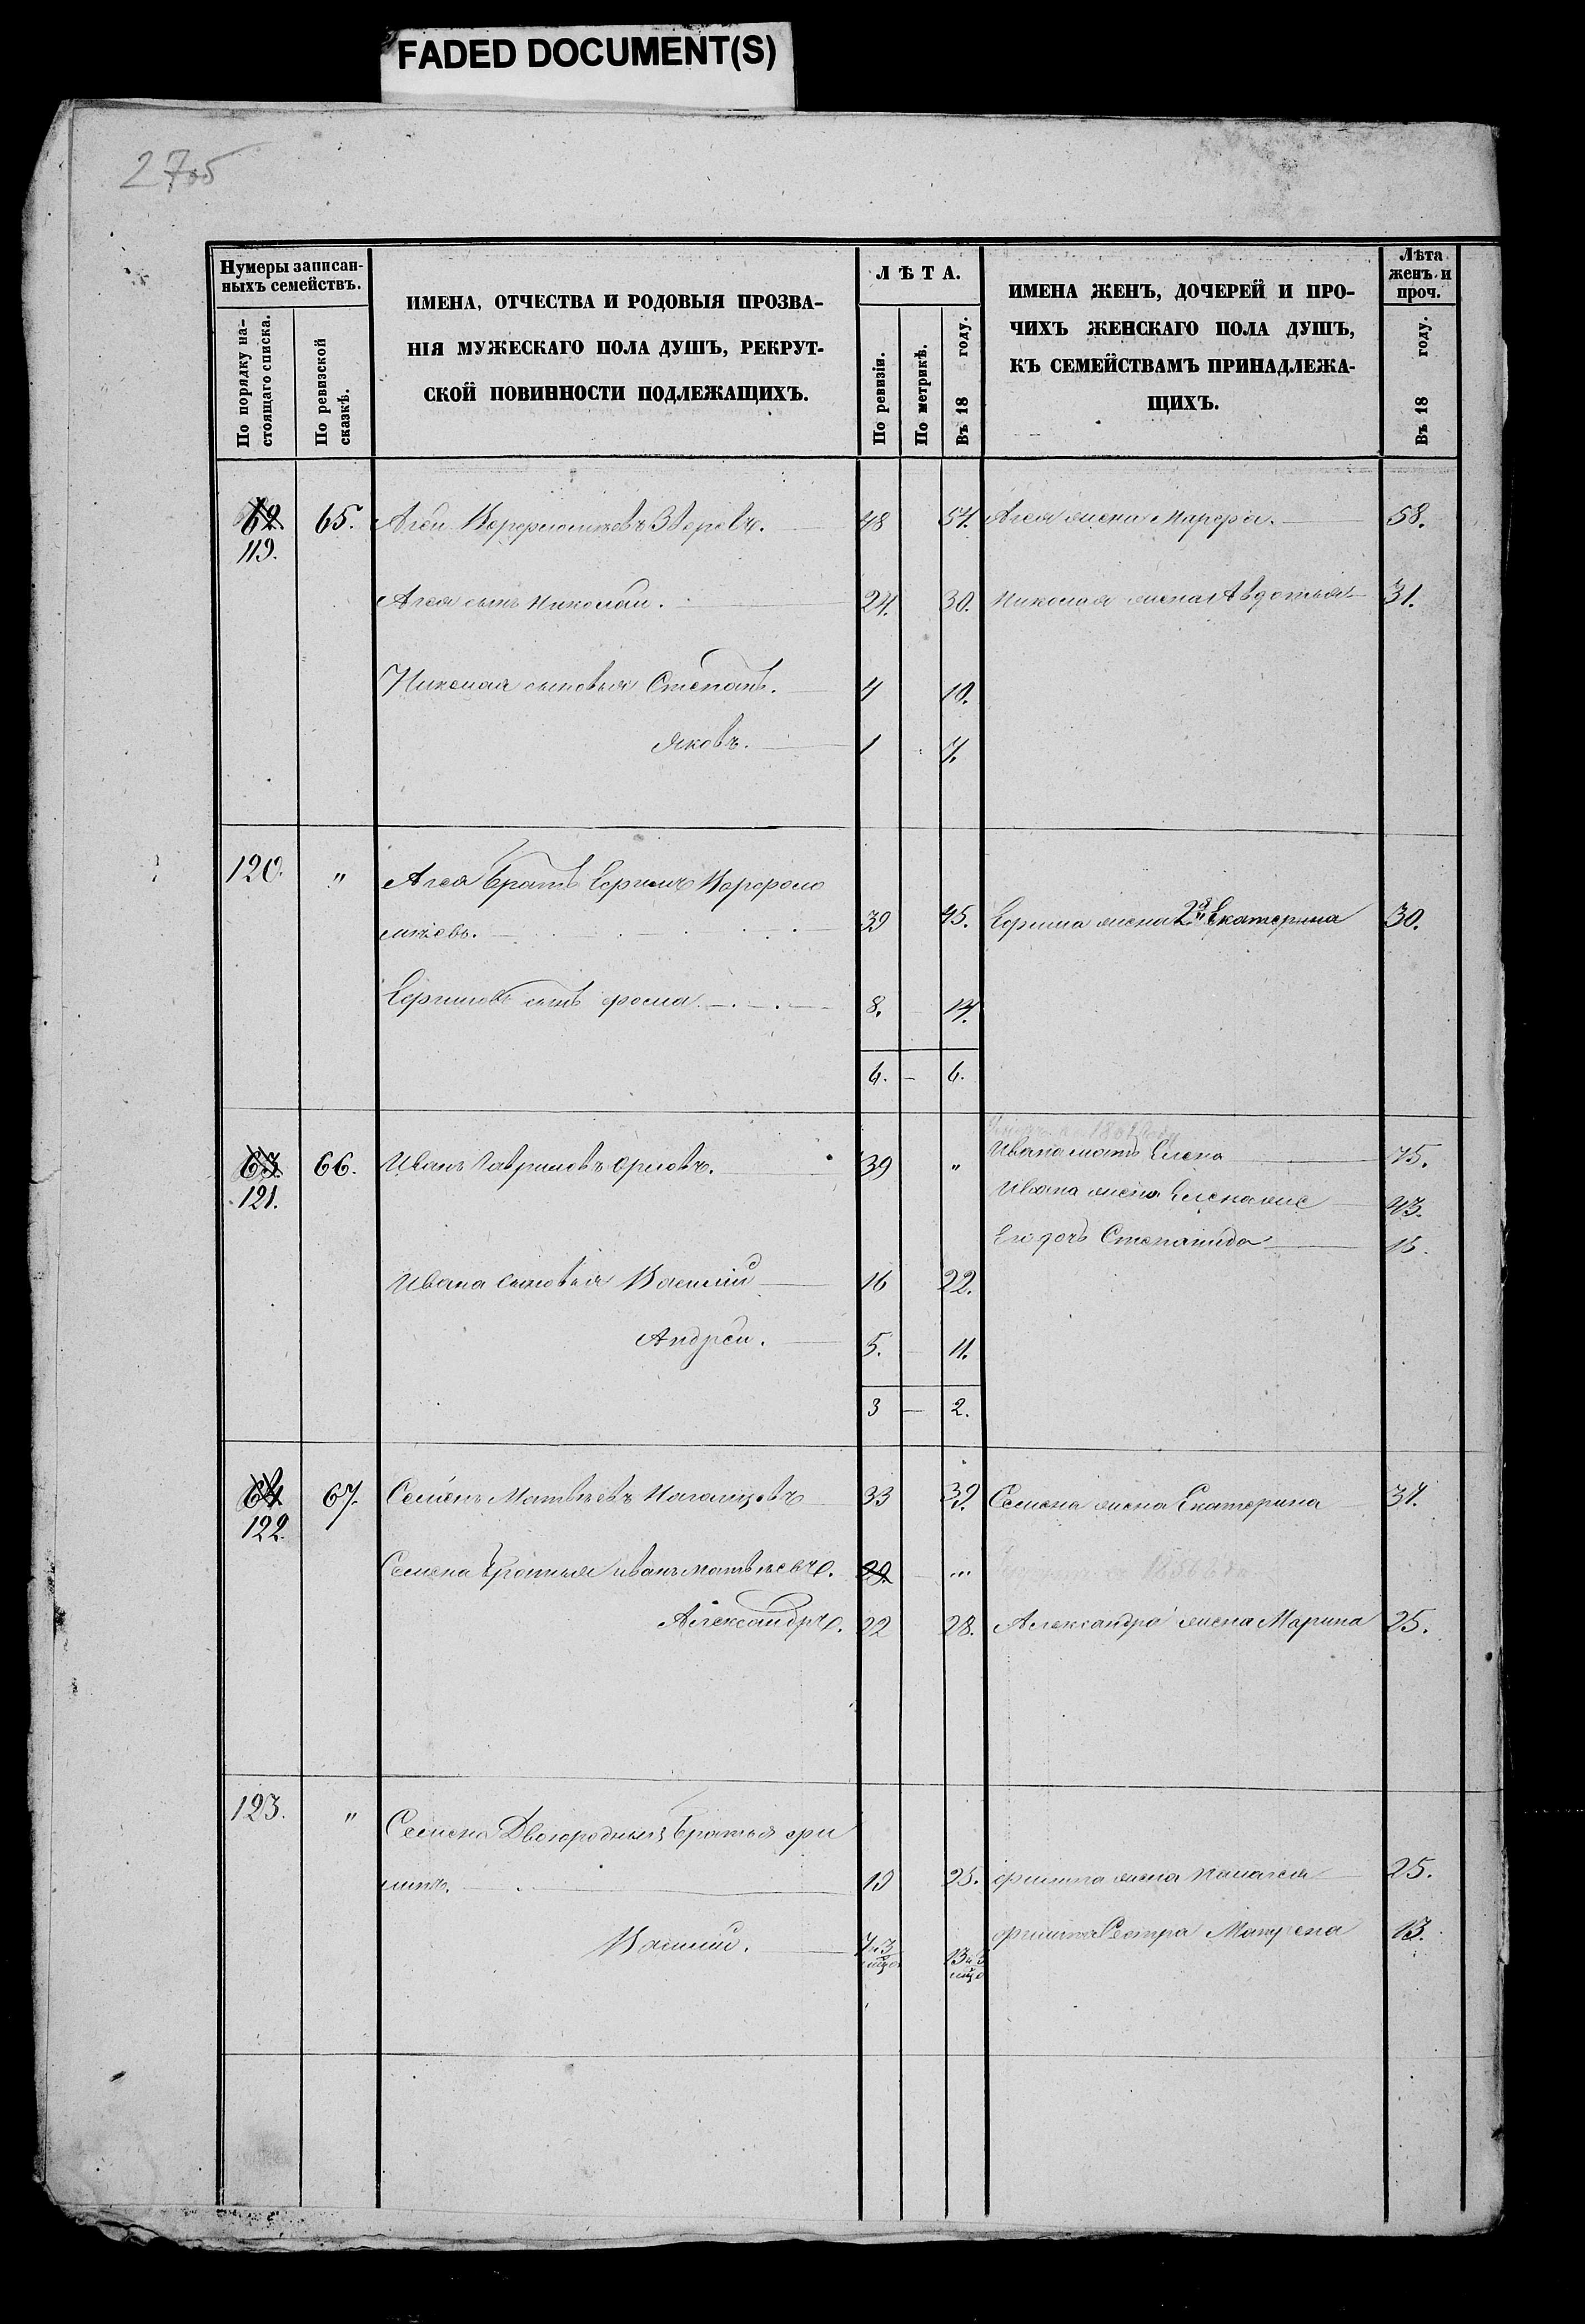 FADED DOCUMENT(S)
2705
Нумеры записан-
ныхъ семействъ.
По порядку на-
стоящаго списка.
По ревизской
сказкѣ.
ИМЕНА, ОТЧЕСТВА И РОДОВЫЯ ПРОЗВА-
НІЯ МУЖЕСКАГО ПОЛА ДУШЪ, РЕКРУТ-
СКОЙ ПОВИННОСТИ ПОДЛЕЖАЩИХЪ.
ЛѢТА.
По ревизіи.
По метрикѣ.
Въ 18 году.
ИМЕНА ЖЕНЪ, ДОЧЕРЕЙ И ПРО-
ЧИХЪ ЖЕНСКАГО ПОЛА ДУШЪ,
КЪ СЕМЕЙСТВАМЪ ПРИНАДЛЕЖА-
ЩИХЪ.
Лѣта
женъ и
проч.
Въ 18 году.
62 65. Агѣй Варфоломѣевъ Звѣревъ. 48 54. Агея жена Марфа. 58.
119.
Агея сынъ Николай. 24. 30. Николая жена Авдотья 31.
Николая сыновья Степанъ. 4 10.
Яковъ. 1 7.
120. " Агея братъ Ефимъ Варфоло
мѣевъ. 39 45. Ефима жена 2я Екатерина 30.
Ефимовъ сынъ Фома 8. 14.
6. — 6.
1861 году
63 66. Иванъ Гавриловъ Орловъ. 39 " Ивана мать Елена 75.
121. Ивана жена Елена же 43.
Его дочь Степанида 15.
Ивана сыновья Василій 16 22.
Андрей. 5. 11.
3 — 2.
64 67. Семенъ Матвѣевъ 33 39. Семена жена Екатерина 37.
122.
Семена братья Иванъ Матвѣевъ. 29. ... 1856
Александръ. 22 28. Александра жена Марина 25.
123. " Семена Двоюродныя братья Фи
липъ. 19 25. Филипа жена Пелагея 25.
Василій. 7 и 3 13 и 3 Филипа Сестра Матрена 13.
мѣс. мѣс.